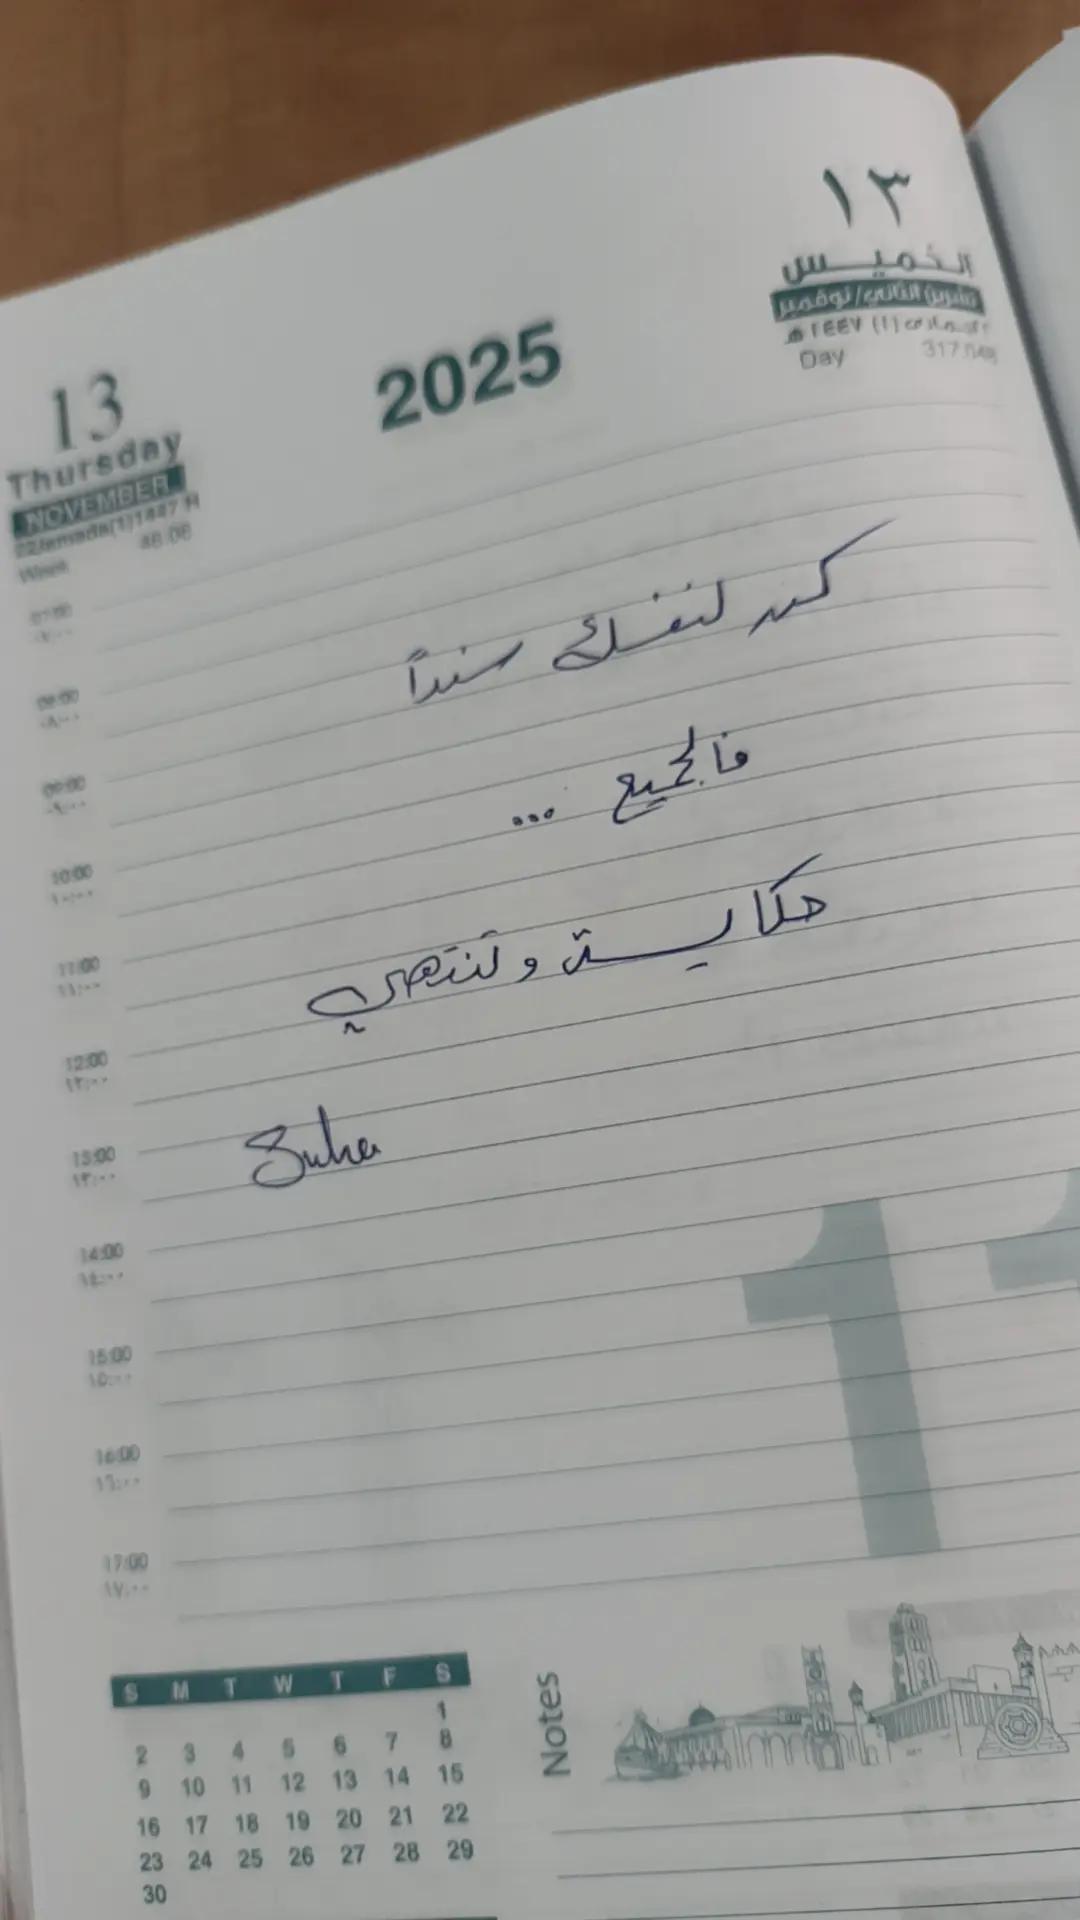 2025
13
Thursday
NOVEMBER
22 Jemada(1) 1447 H
Week 46:06
١٣
الخميس
تشرين الثاني/نوفمبر
Day 317
كن لنفسك سنداً
فالجميع ...
حكاية وتنتهي
Suha
07:00
08:00
٠٨:٠٠
09:00
٠٩:٠٠
10:00
١٠:٠٠
11:00
١١:٠٠
12:00
١٢:٠٠
13:00
١٣:٠٠
14:00
١٤:٠٠
15:00
١٥:٠٠
16:00
١٦:٠٠
17:00
١٧:٠٠
11
S M T W T F S
1
2 3 4 5 6 7 8
9 10 11 12 13 14 15
16 17 18 19 20 21 22
23 24 25 26 27 28 29
30
Notes